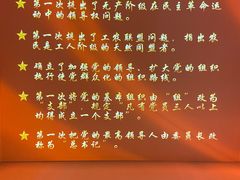 第一次提出了无产阶级在民主革命运
动中的领导权问题。
第一次提出了工农联盟问题，指出农
民是工人阶级的天然同盟者。
确立了加强党的领导、扩大党的组织
执行使党群众化的组织路线。
第一次将党的基本组织由"组"改为
"支部"，规定"凡有党员三人以上
均得成立一个支部"。
第一次把党的最高领导人由委员长改
称为"总书记"。